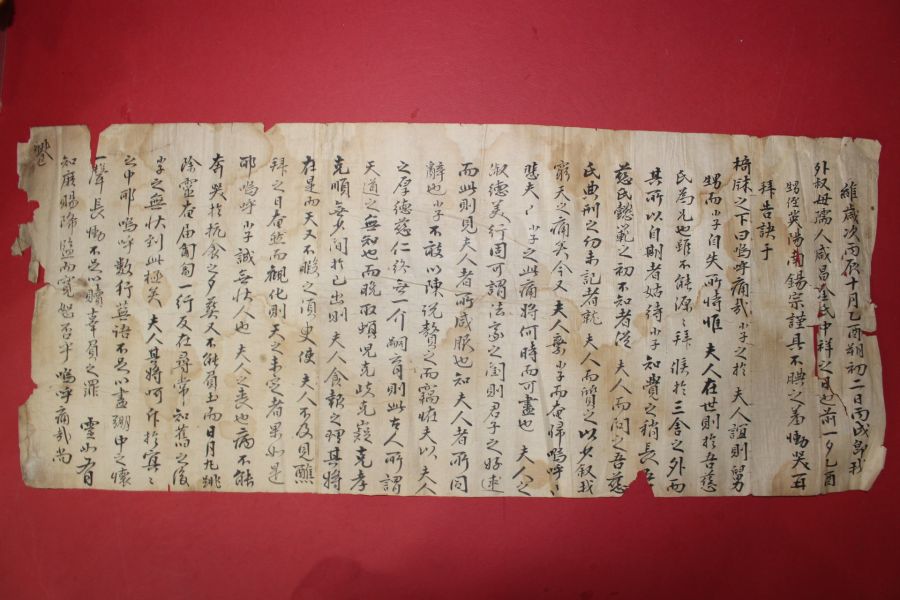 維歲次丙辰十月乙酉朔初二日丙戌卽我
外叔母孺人咸昌金氏中祥之日也前一夕乙酉
甥侄英陽南錫宗謹具不腆之羞慟哭再
拜告訣于
柩牀之下曰嗚呼痛哉小子之於 夫人誼則舅
甥而小子自失所恃惟 夫人在世則於吾慈
氏爲兄也雖不能源源拜候於三舍之外而
其所以自期者姑待小子知覺之稍長吾
慈氏懿範之初不知者從 夫人而問之吾慈
氏典刑之勿未記者就 夫人而質之以少叙我
窮天之痛矣今又 夫人棄小子而奄歸嗚呼
悲夫悲夫小子之此痛將何時而可盡也 夫人之
淑德美行固可謂法家之閫則君子之好逑
而此則見夫人者所咸服也知夫人者所同
辭也小子不敢以陳說贅之而竊惟夫以 夫人
之厚德慈仁終無一介嗣育則此古人所謂
天道之無知也而晩取螟兒克岐克嶷克孝
克順無少間於己出則 夫人食報之理其將
在是而天又不暇之須臾使 夫人不及見醮
拜之日奄然而觀化則天之未定者果如是
耶嗚呼小子誠無狀人也 夫人之喪也病不能
奔哭於抗食之夕葬又不能負土而日月九跳
除靈奄届匍匐一行反在尋常知舊之後
小子之無狀到此極矣 夫人其將呵斥於冥冥
之中耶嗚呼數行蕪語不足以盡綳中之懷
一聲長慟不足以贖辜負之罪 靈如有
知庶賜歸監而寬恕否乎嗚呼痛哉尚
饗